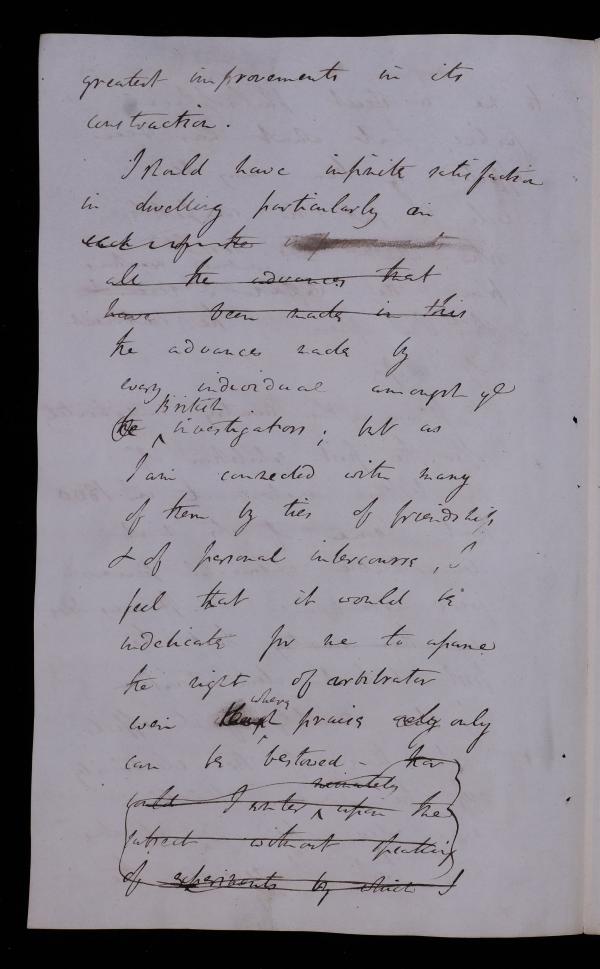 greatest improvements in its
construction.
I should have infinite satisfaction
in dwelling particularly on
each upon the improvements
all the advances that
have been made in this
the advances made by
every individual amongst ye
British
the investigators; but as
I am connected with many
of them by ties of friendship
& of personal intercourse, I
feel that it would be
indelicate for me to assume
the right of arbitrator
where
even praise only only
can be bestowed - Nor
minutely
could I enter upon the
subject without speaking
of experiments by which I